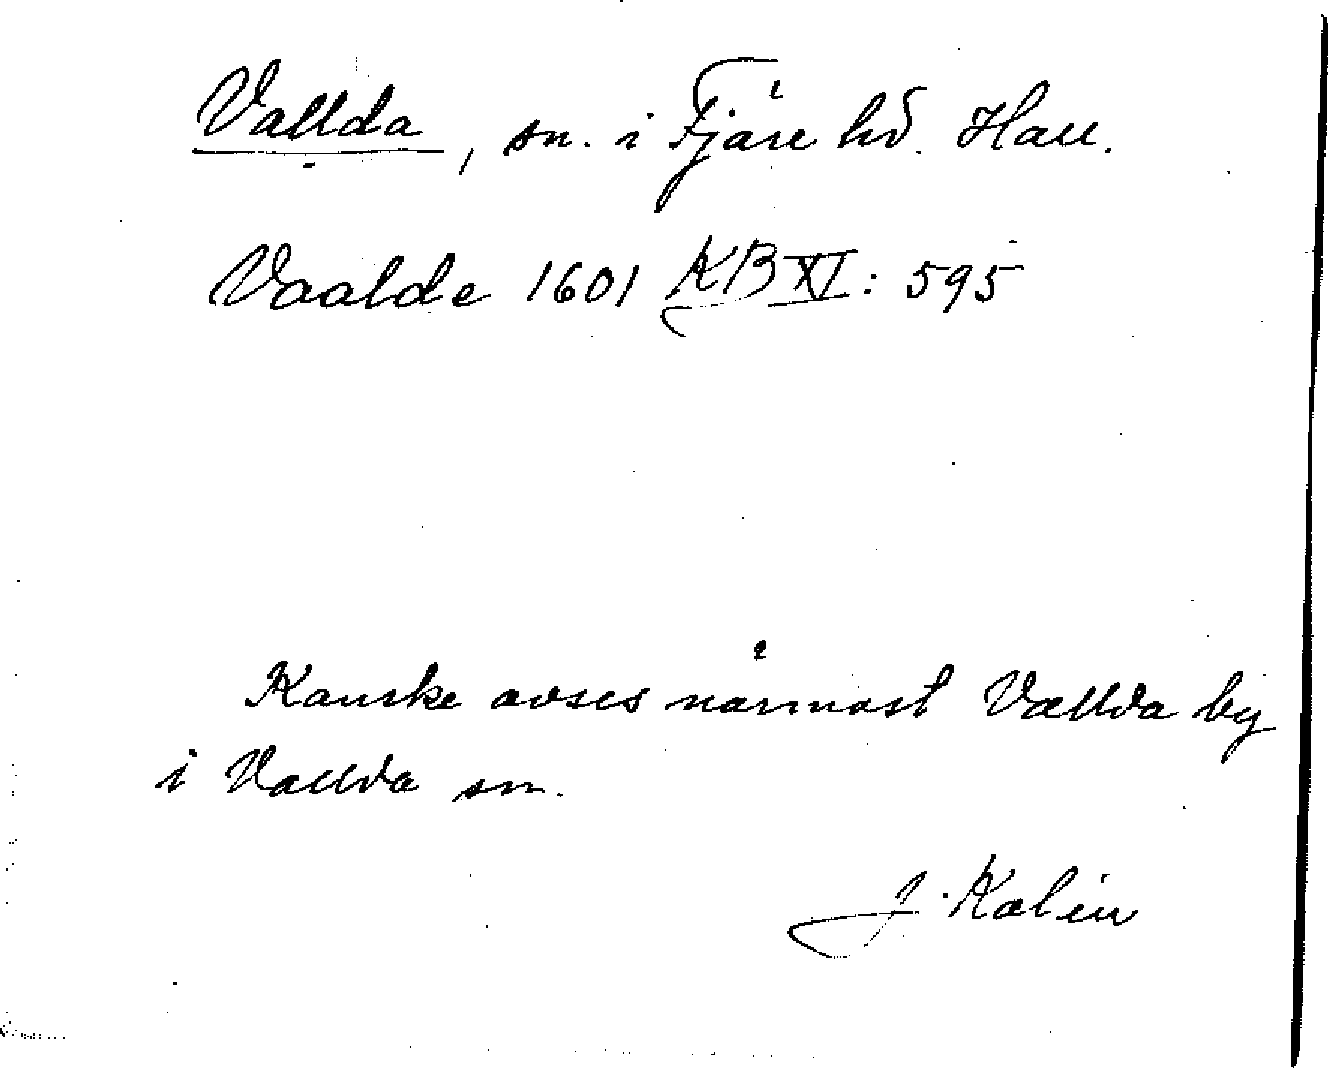 Vallda, sn. i Fjäre hd. Hall.
Vaalde 1601 KB XI: 595
Kanske avses närmast Vallda by
i Vallda sn.
J. Kalén